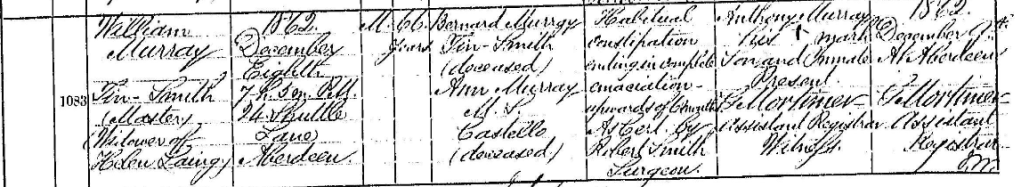 1083
William
Murray
Tin-Smith
(Master)
(Widower of
Helen Laing)
1862.
December
Eighth
7 h. 5m. P.M.
24 Shuttle
Lane
Aberdeen.
M. 66
Years
Bernard Murray
Tin-Smith
(deceased)
Ann Murray
M. S.
Castello
(deceased)
Habitual
constipation
ending in complete
emaciation-
upwards of 6 months
As Cert. by
Robert Smith
Surgeon.
Anthony Murray
his + mark
Son and Inmate
Present.
G Mortimer
Assistant Registrar
Witness.
1862.
December 9th
At Aberdeen
G Mortimer
Assistant
Registrar.